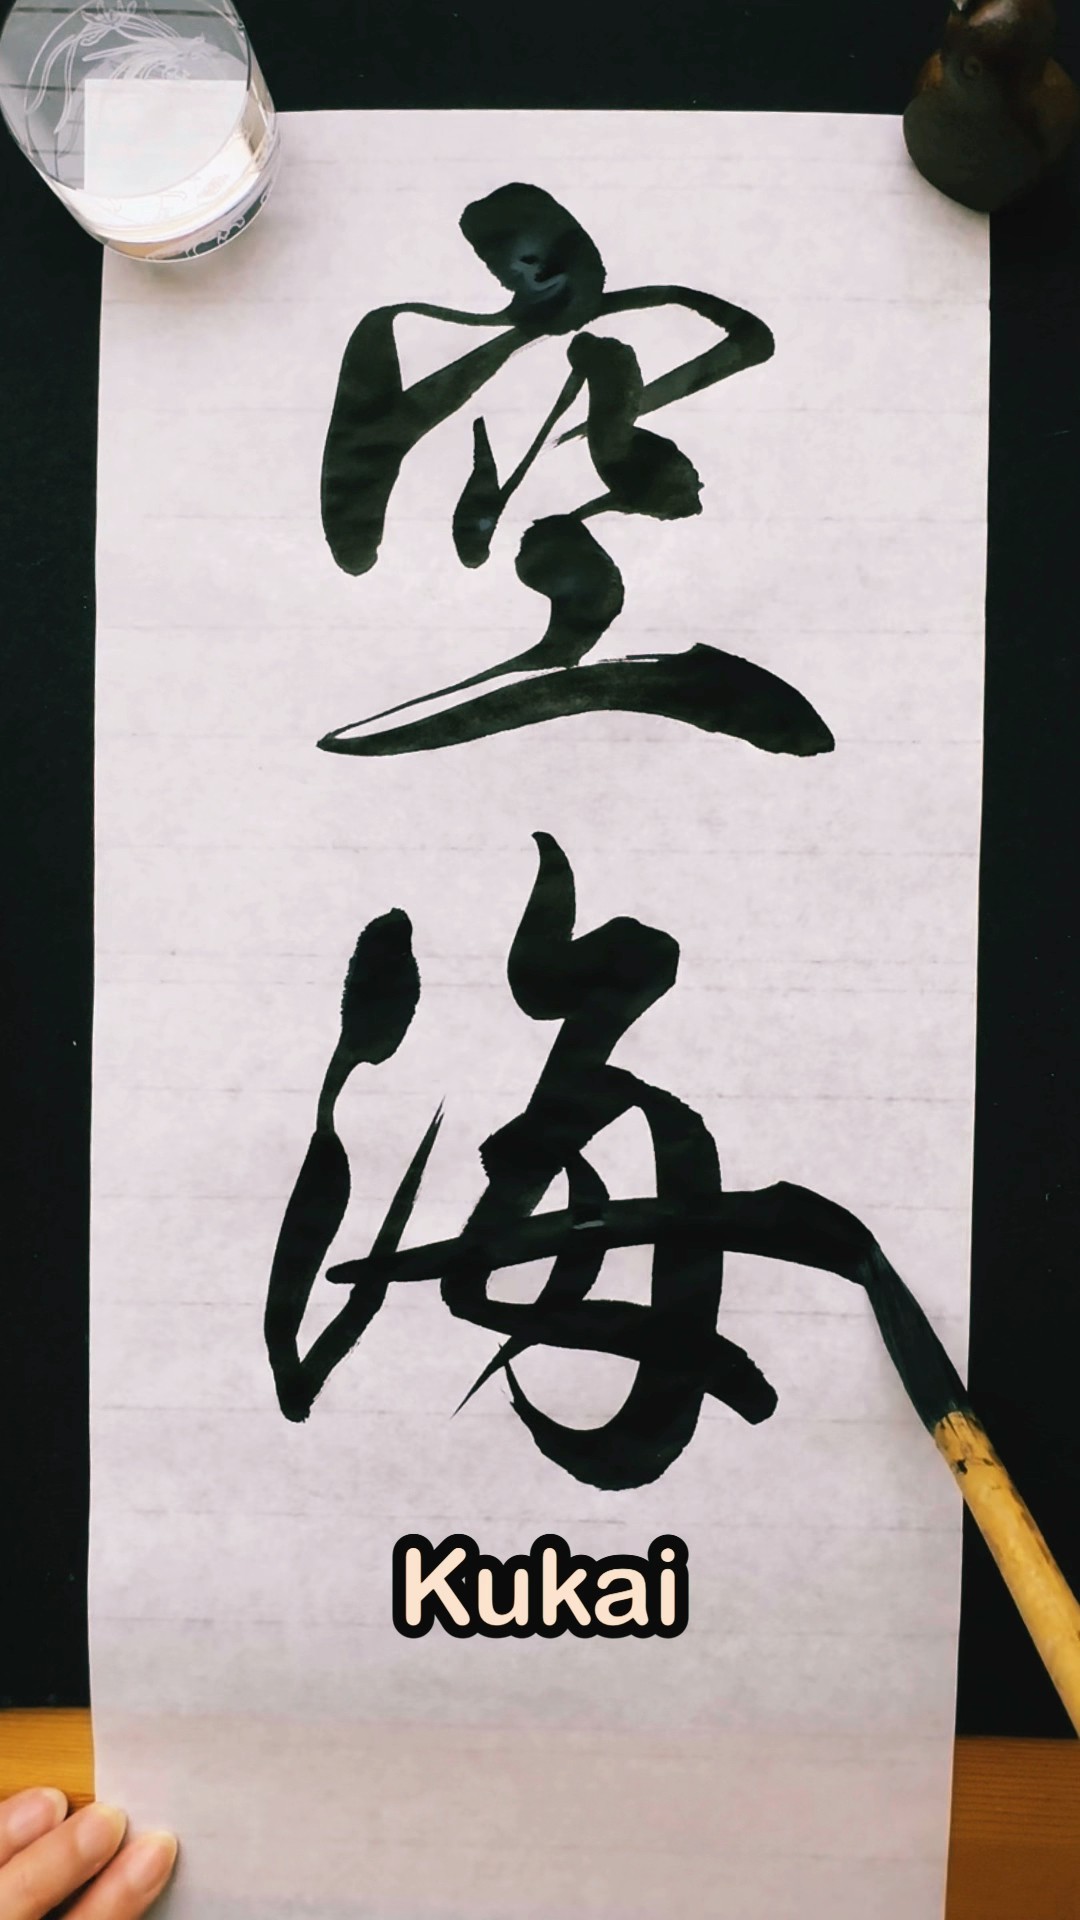 空海
Kukai